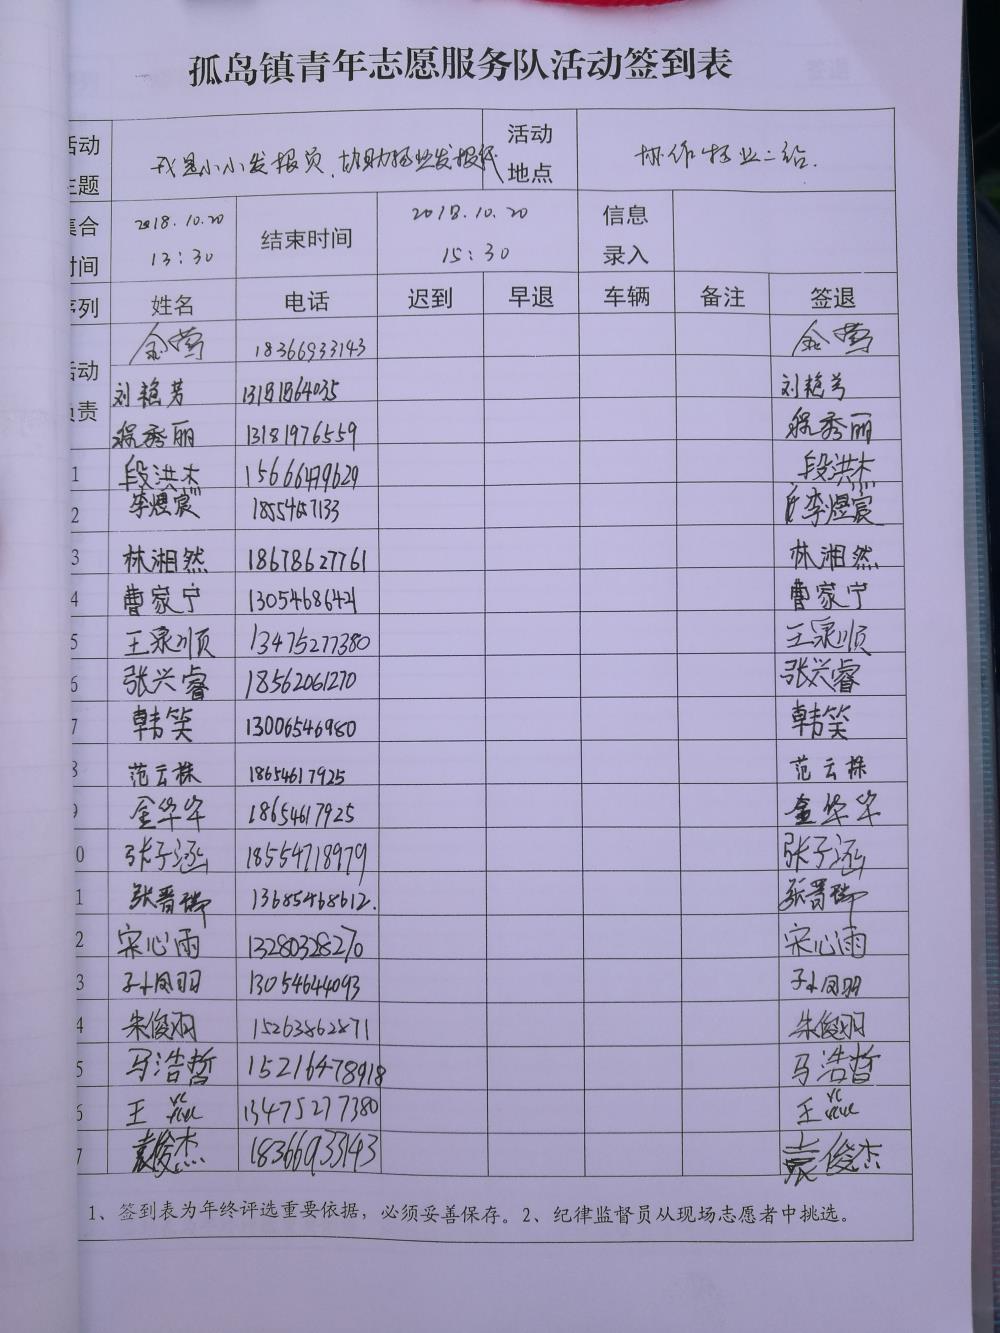 孤岛镇青年志愿服务队活动签到表
活动主题 我是小小发报员、协助物业发报纸 活动地点 协作物业二站.
集合时间 2018.10.20 13:30 结束时间 2018.10.20 15:30 信息录入
序列 姓名 电话 迟到 早退 车辆 备注 签退
活动负责 金莺 18366933143 金莺
刘艳芳 13181864035 刘艳芳
程秀丽 13181976559 程秀丽
1 段洪杰 15666479629 段洪杰
2 李煜宸 李煜宸
3 林湘然 18678627761 林湘然
4 曹家宁 曹家宁
5 王泉顺 13475277380 王泉顺
6 张兴睿 18562061270 张兴睿
7 韩笑 13006546980 韩笑
8 范云株 18654617925 范云株
9 金华华 18654617925 金华华
0 张子涵 18554718979 张子涵
1 张晋瑞 13685468612. 张晋瑞
2 宋心雨 13280328270 宋心雨
3 孙凤羽 13054644093 孙凤羽
4 朱俊羽 15263862871 朱俊羽
5 马浩哲 15216478918 马浩哲
6 王焱 13475277380 王焱
7 袁俊杰 18366933143 袁俊杰
1、签到表为年终评选重要依据，必须妥善保存。2、纪律监督员从现场志愿者中挑选。